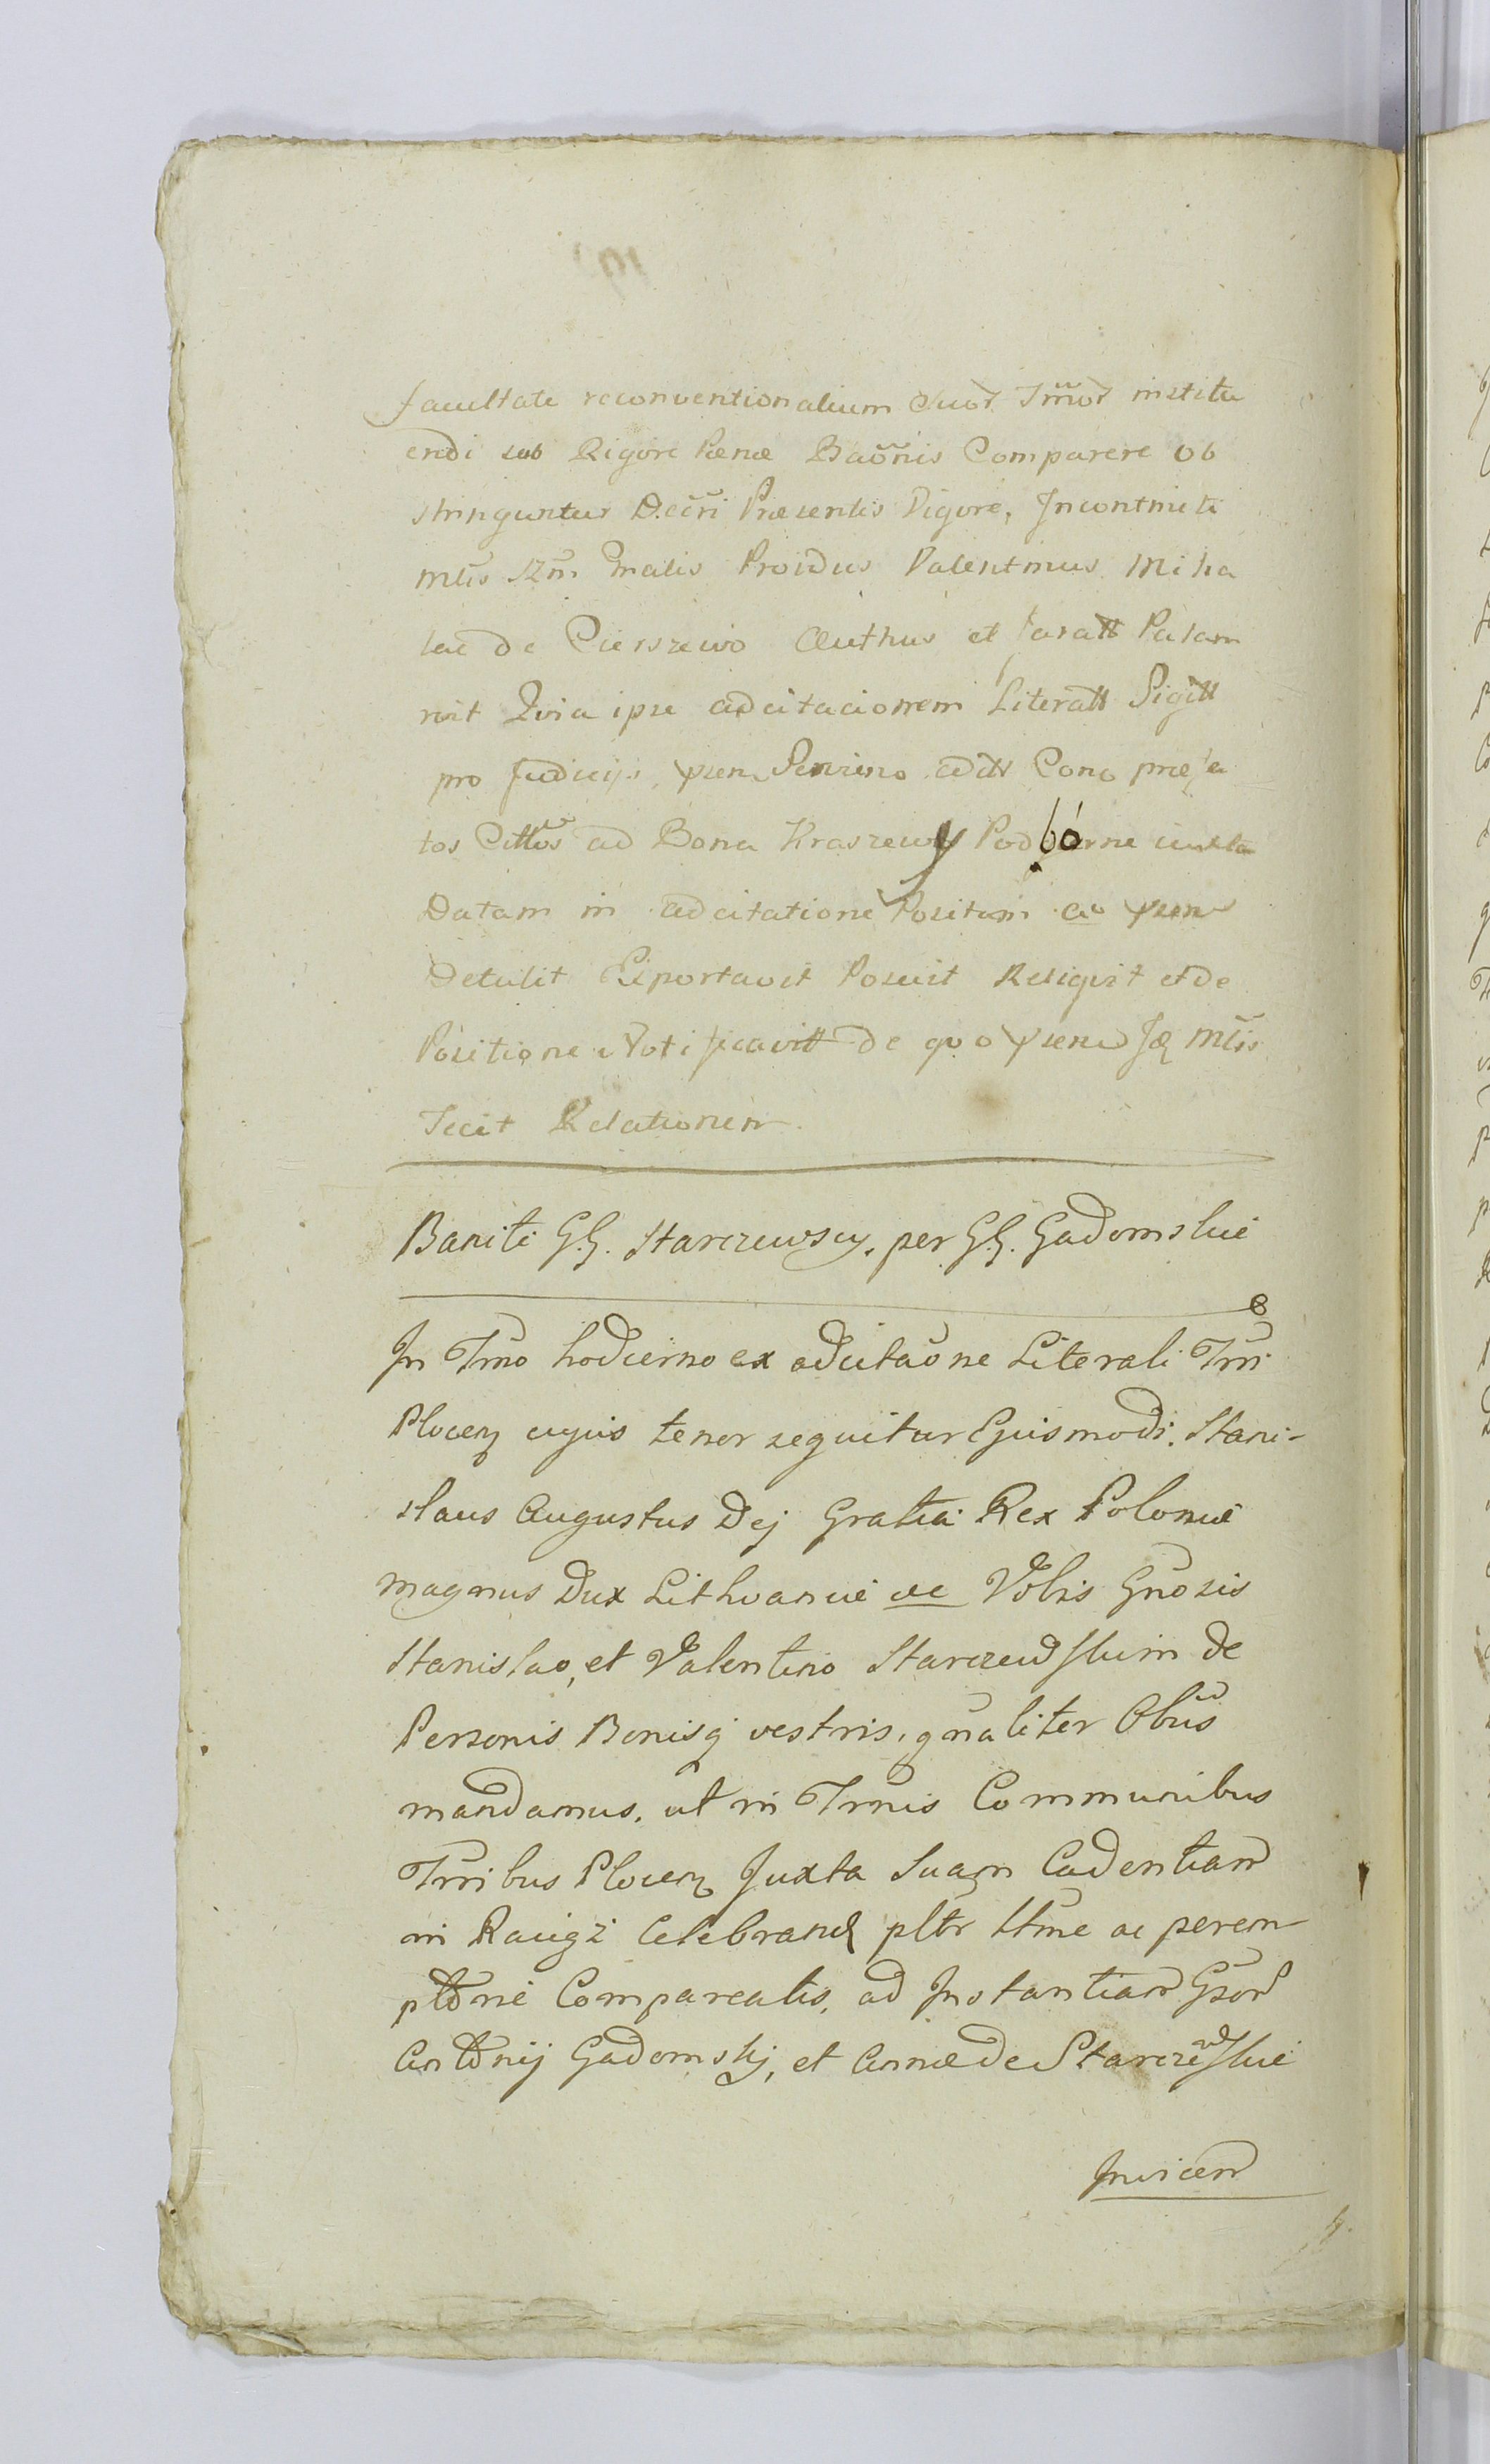 facultate reconventionalium Suor Tm̃or institu
endi sub Rigore Pœnæ Bao̅nis Comparere ob
stringuntur Dec̃ri Præsentis Vigore, Incontineti
Mt̃is Providus Valentinus Micha
lac de Pierszewo et Juratt Palam
vit Quia ipse adcitacionem Literatt Sigitt
pro Judicijs præfa
tos Citt̃os ad Bona Kraszewy Podborne iuxta
Datam in adcitatione Positam ac
Detulit Exportavit Posuit Reliqvit et de
Positione Notificavitt de quo Mt̃is
Fecit Relationem.
Baniti G.G. Starczewscy. per G.G. Gadomskie
In Tm̃o hodierno ex adcitao̅ne Literali Trñi
Plocen cujus tenor sequitur Ejusmodi. Stani-
slaus Augustus Dej Gratia Rex Poloniæ
Magnus Dux Lithvaniæ etc Vobis Gño sis
Stanislao, et Valentino Starczewskim de
Personis Bonisq vestris, gñaliter Ob̃us
mandamus. ut in Trm̃is Communibus
Trr̃ibus Plocen Juxta Suam Cadentiam
in Raciąż Celebrand pltr ttme ac perem
ptorie Compareatis, ad Instantiam Gsor
Antonij Gadomskj, et Annæ de Starczewskie
Invicem